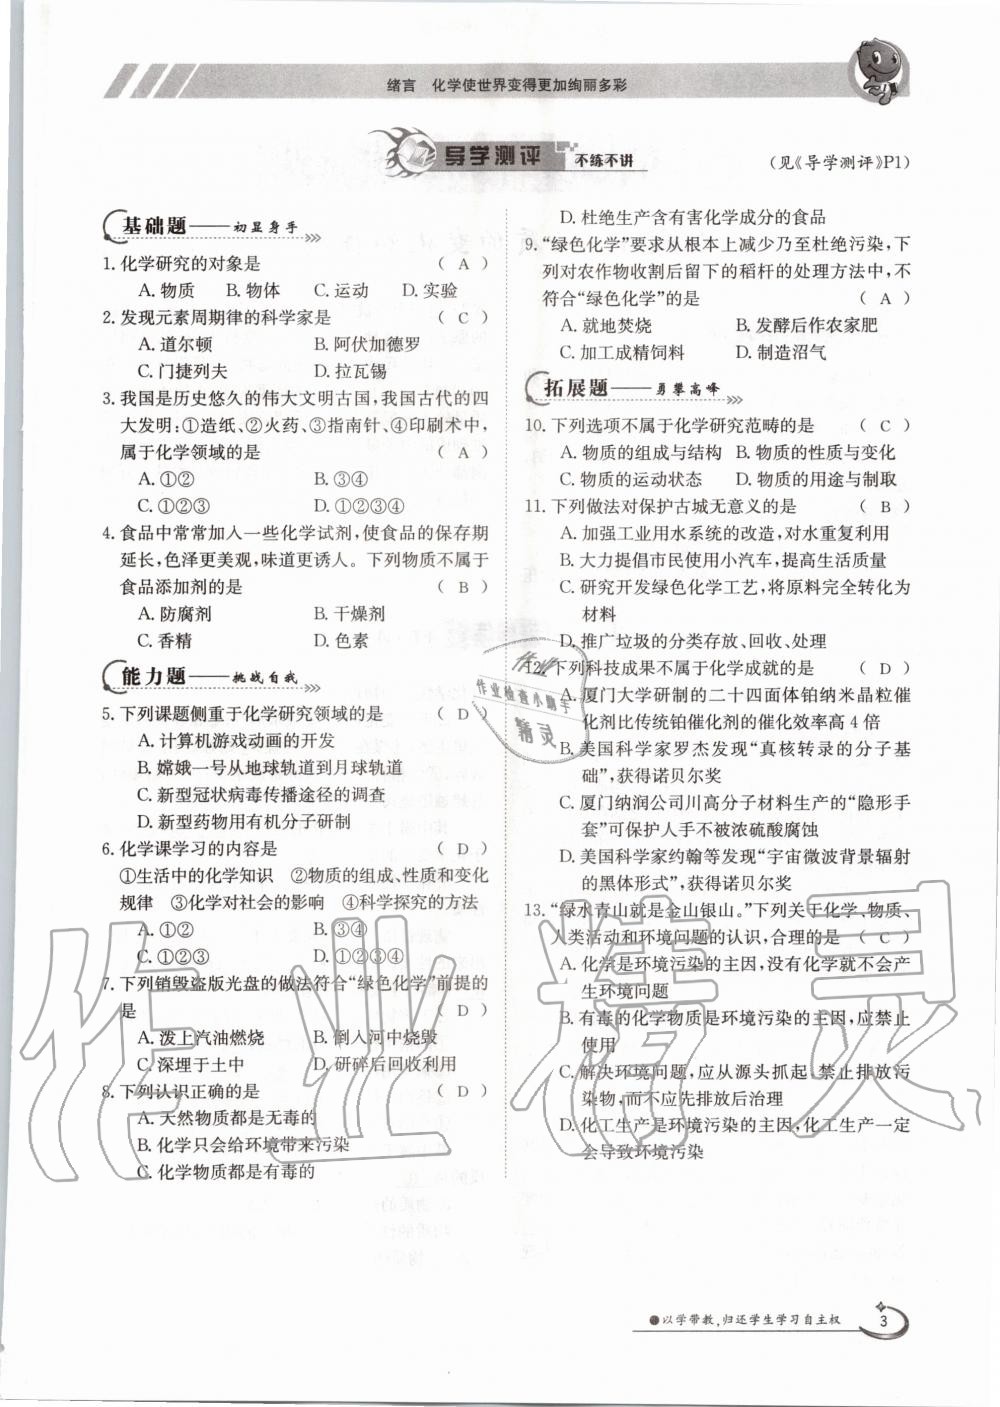 绪言　化学使世界变得更加绚丽多彩
导学测评 不练不讲
(见《导学测评》P1)
基础题——初显身手
1. 化学研究的对象是 ( A )
A. 物质 B. 物体 C. 运动 D. 实验
2. 发现元素周期律的科学家是 ( C )
A. 道尔顿 B. 阿伏加德罗
C. 门捷列夫 D. 拉瓦锡
3. 我国是历史悠久的伟大文明古国,我国古代的四
大发明:①造纸、②火药、③指南针、④印刷术中,
属于化学领域的是 ( A )
A. ①② B. ③④
C. ①②③ D. ①②③④
4. 食品中常常加入一些化学试剂,使食品的保存期
延长,色泽更美观,味道更诱人。下列物质不属于
食品添加剂的是 ( B )
A. 防腐剂 B. 干燥剂
C. 香精 D. 色素
能力题——挑战自我
5. 下列课题侧重于化学研究领域的是 ( D )
A. 计算机游戏动画的开发
B. 嫦娥一号从地球轨道到月球轨道
C. 新型冠状病毒传播途径的调查
D. 新型药物用有机分子研制
6. 化学课学习的内容是 ( D )
①生活中的化学知识 ②物质的组成、性质和变化
规律 ③化学对社会的影响 ④科学探究的方法
A. ①② B. ③④
C. ①②③ D. ①②③④
7. 下列销毁盗版光盘的做法符合“绿色化学”前提的
是 ( D )
A. 泼上汽油燃烧 B. 倒入河中烧毁
C. 深埋于土中 D. 研碎后回收利用
8. 下列认识正确的是 ( D )
A. 天然物质都是无毒的
B. 化学只会给环境带来污染
C. 化学物质都是有毒的
D. 杜绝生产含有害化学成分的食品
9. “绿色化学”要求从根本上减少乃至杜绝污染,下
列对农作物收割后留下的稻杆的处理方法中,不
符合“绿色化学”的是 ( A )
A. 就地焚烧 B. 发酵后作农家肥
C. 加工成精饲料 D. 制造沼气
拓展题——勇攀高峰
10. 下列选项不属于化学研究范畴的是 ( C )
A. 物质的组成与结构 B. 物质的性质与变化
C. 物质的运动状态 D. 物质的用途与制取
11. 下列做法对保护古城无意义的是 ( B )
A. 加强工业用水系统的改造,对水重复利用
B. 大力提倡市民使用小汽车,提高生活质量
C. 研究开发绿色化学工艺,将原料完全转化为
材料
D. 推广垃圾的分类存放、回收、处理
12. 下列科技成果不属于化学成就的是 ( D )
A. 厦门大学研制的二十四面体铂纳米晶粒催
化剂比传统铂催化剂的催化效率高 4 倍
B. 美国科学家罗杰发现“真核转录的分子基
础”,获得诺贝尔奖
C. 厦门纳润公司川高分子材料生产的“隐形手
套”可保护人手不被浓硫酸腐蚀
D. 美国科学家约翰等发现“宇宙微波背景辐射
的黑体形式”,获得诺贝尔奖
13. “绿水青山就是金山银山。”下列关于化学、物质、
人类活动和环境问题的认识,合理的是 ( C )
A. 化学是环境污染的主因,没有化学就不会产
生环境问题
B. 有毒的化学物质是环境污染的主因,应禁止
使用
C. 解决环境问题,应从源头抓起 禁止排放污
染物,而不应先排放后治理
D. 化工生产是环境污染的主因,化工生产一定
会导致环境污染
●以学带教,归还学生学习自主权 3
作业
作业检查小助手
精灵
作业精灵